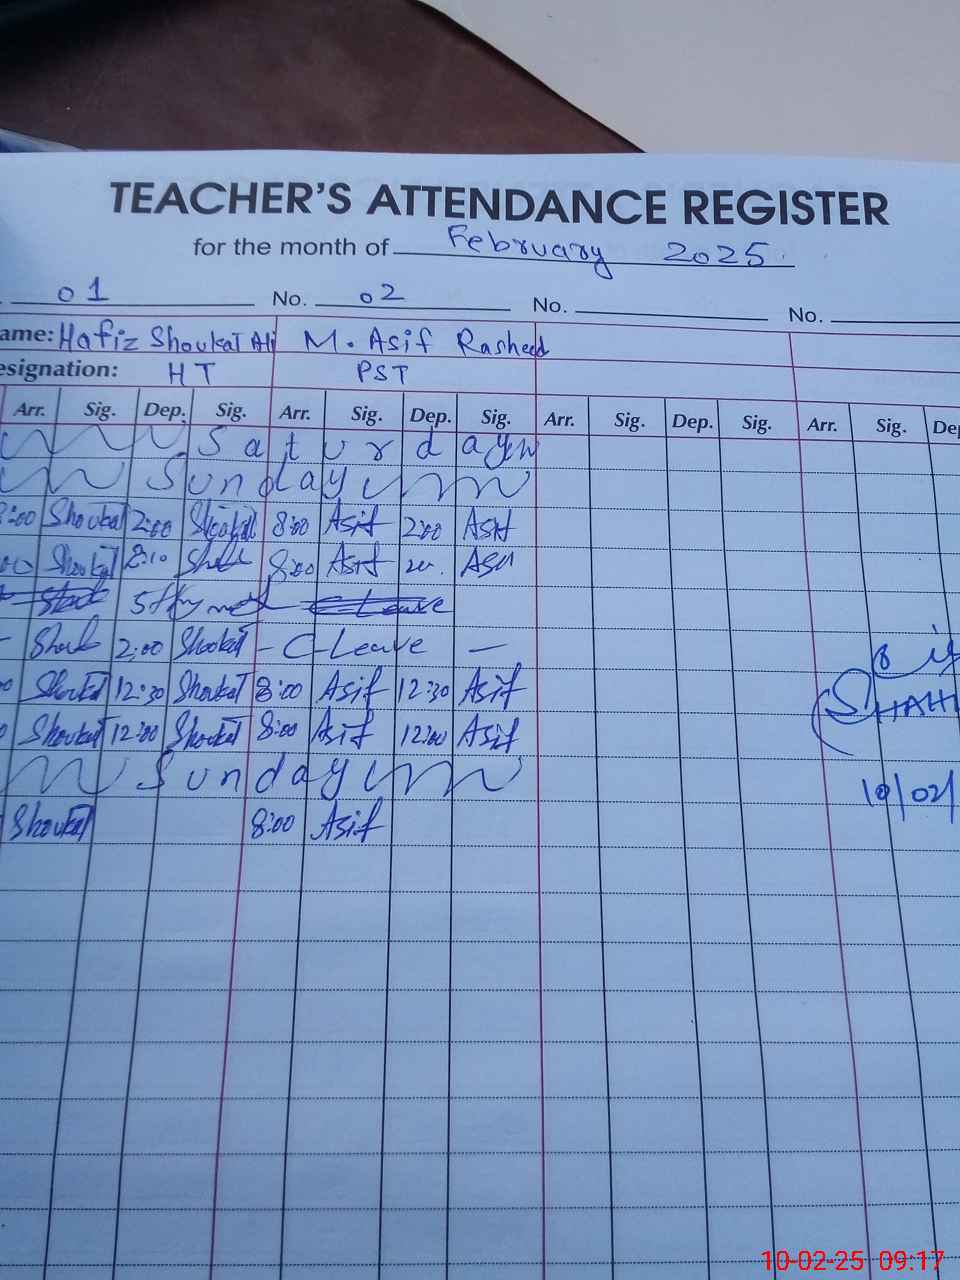 TEACHER'S ATTENDANCE REGISTER
for the month of February 2025
01 No. 02 No. No.
ame: Hafiz Shoukat Ali M. Asif Rasheed
esignation: HT PST
Arr. Sig. Dep. Sig. Arr. Sig. Dep. Sig. Arr. Sig. Dep. Sig. Arr. Sig. De
Saturday
Sunday
8:00 Shoukat 2:00 Shoukat 8:00 Asif 2:00 Asif
00 Shoukat 2:10 8:00 Asif Asif
Leave
Shouk 2:00 Shoukat - C-Leave -
00 Shoukat 12:30 Shoukat 8:00 Asif 12:30 Asif
Shoukat 12:00 Shoukat 8:00 Asif 12:00 Asif
SHAH
Sunday
10/02/
Shoukat 8:00 Asif
10-02-25 09:17